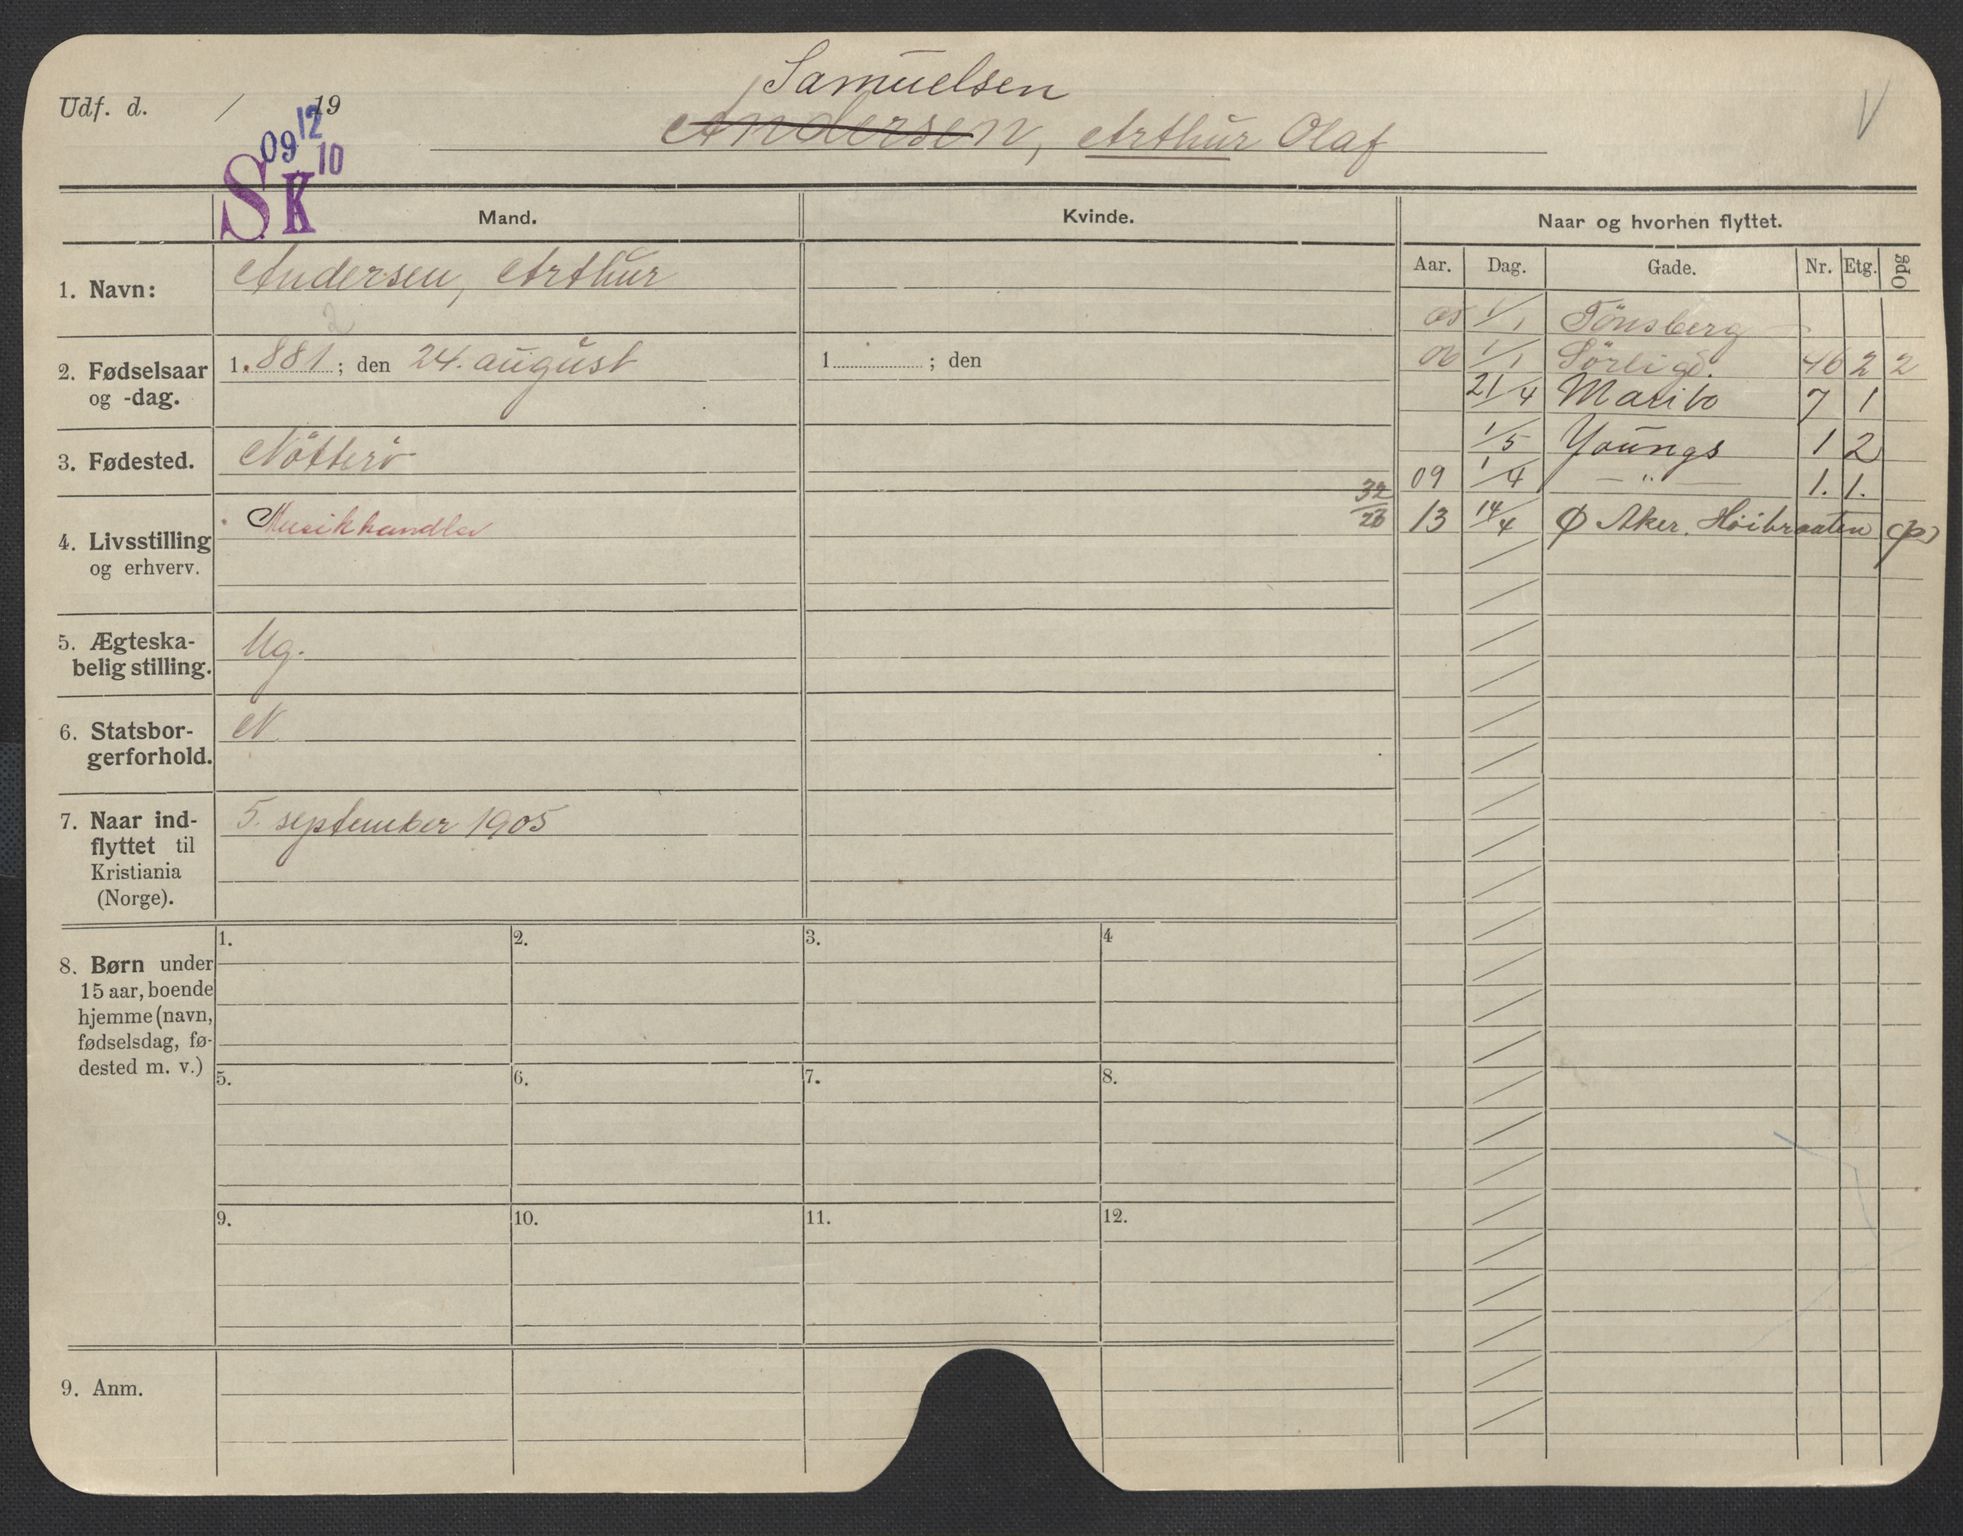 Samuelsen
Udf. d. / 19
Andersen, Arthur Olaf
V
09 12 10
SK
Mand.
Kvinde.
Naar og hvorhen flyttet.
Aar. Dag. Gade. Nr. Etg. Opg
1. Navn: Andersen, Arthur
2
2. Fødselsaar og -dag. 1.881; den 24. august
1 ; den
3. Fødested. Nötterö
4. Livsstilling og erhverv. Musikhandler
5. Ægteskabelig stilling. Ug.
6. Statsborgerforhold. N.
7. Naar indflyttet til Kristiania (Norge). 5. september 1905
05 1/1 Tönsberg
06 1/1 Sörligd. 46 2 2
21/4 Maribo 7 1
1/5 Youngs 1 2
09 1/4 — " — 1. 1.
32/26 13 14/4 Ø Aker. Höibraaten (p)
8. Børn under
15 aar, boende
hjemme (navn,
fødselsdag, fø-
dested m. v.)
1. 2. 3. 4
5. 6. 7. 8.
9. 10. 11. 12.
9. Anm.